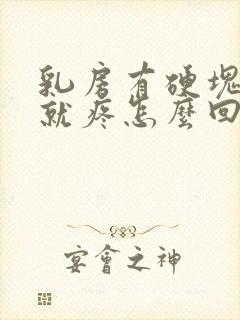 乳房有硬塊
就疼怎麼回
宴會之神